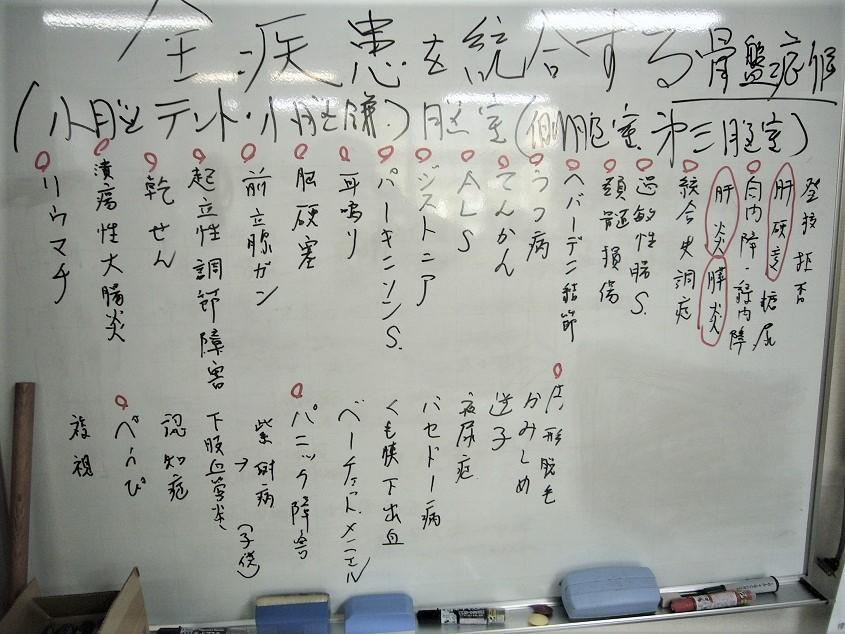 全疾患を統合する骨盤症候
(小脳テント・小脳鎌)脳室(側脳室、第三脳室)
登校拒否
肝硬変 糖尿
白内障・緑内障
肝炎 膵炎
統合失調症
過敏性腸S.
頚髄損傷
ヘバーデン結節
うつ病
てんかん
ALS
ジストニア
パーキンソンS.
耳鳴り
脳硬塞
前立腺ガン
起立性調節障害
乾せん
潰瘍性大腸炎
リウマチ
円形脱毛
かみしめ
逆子
夜尿症
バセドー病
くも膜下出血
ベーチェット.メニエル
パニック障害
紫斑病(子供)
下肢血管炎
認知症
複視